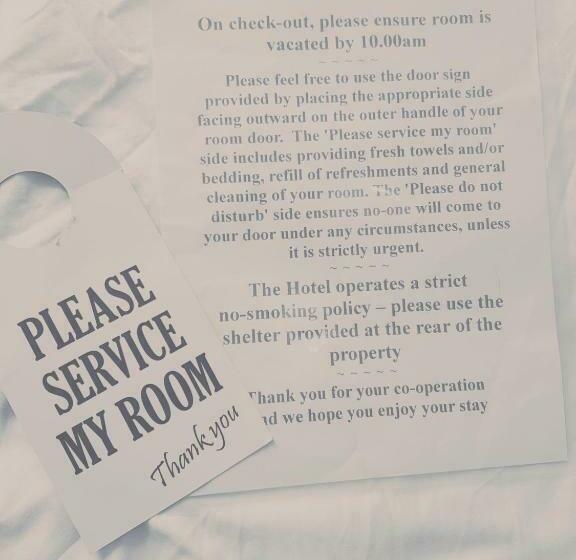 On check-out, please ensure room is
vacated by 10.00am
~ ~ ~ ~ ~
Please feel free to use the door sign
provided by placing the appropriate side
facing outward on the outer handle of your
room door. The 'Please service my room'
side includes providing fresh towels and/or
bedding, refill of refreshments and general
cleaning of your room. The 'Please do not
disturb' side ensures no-one will come to
your door under any circumstances, unless
it is strictly urgent.
~ ~ ~ ~ ~
The Hotel operates a strict
no-smoking policy – please use the
shelter provided at the rear of the
property
~ ~ ~ ~ ~
Thank you for your co-operation
nd we hope you enjoy your stay
PLEASE
SERVICE
MY ROOM
Thank you